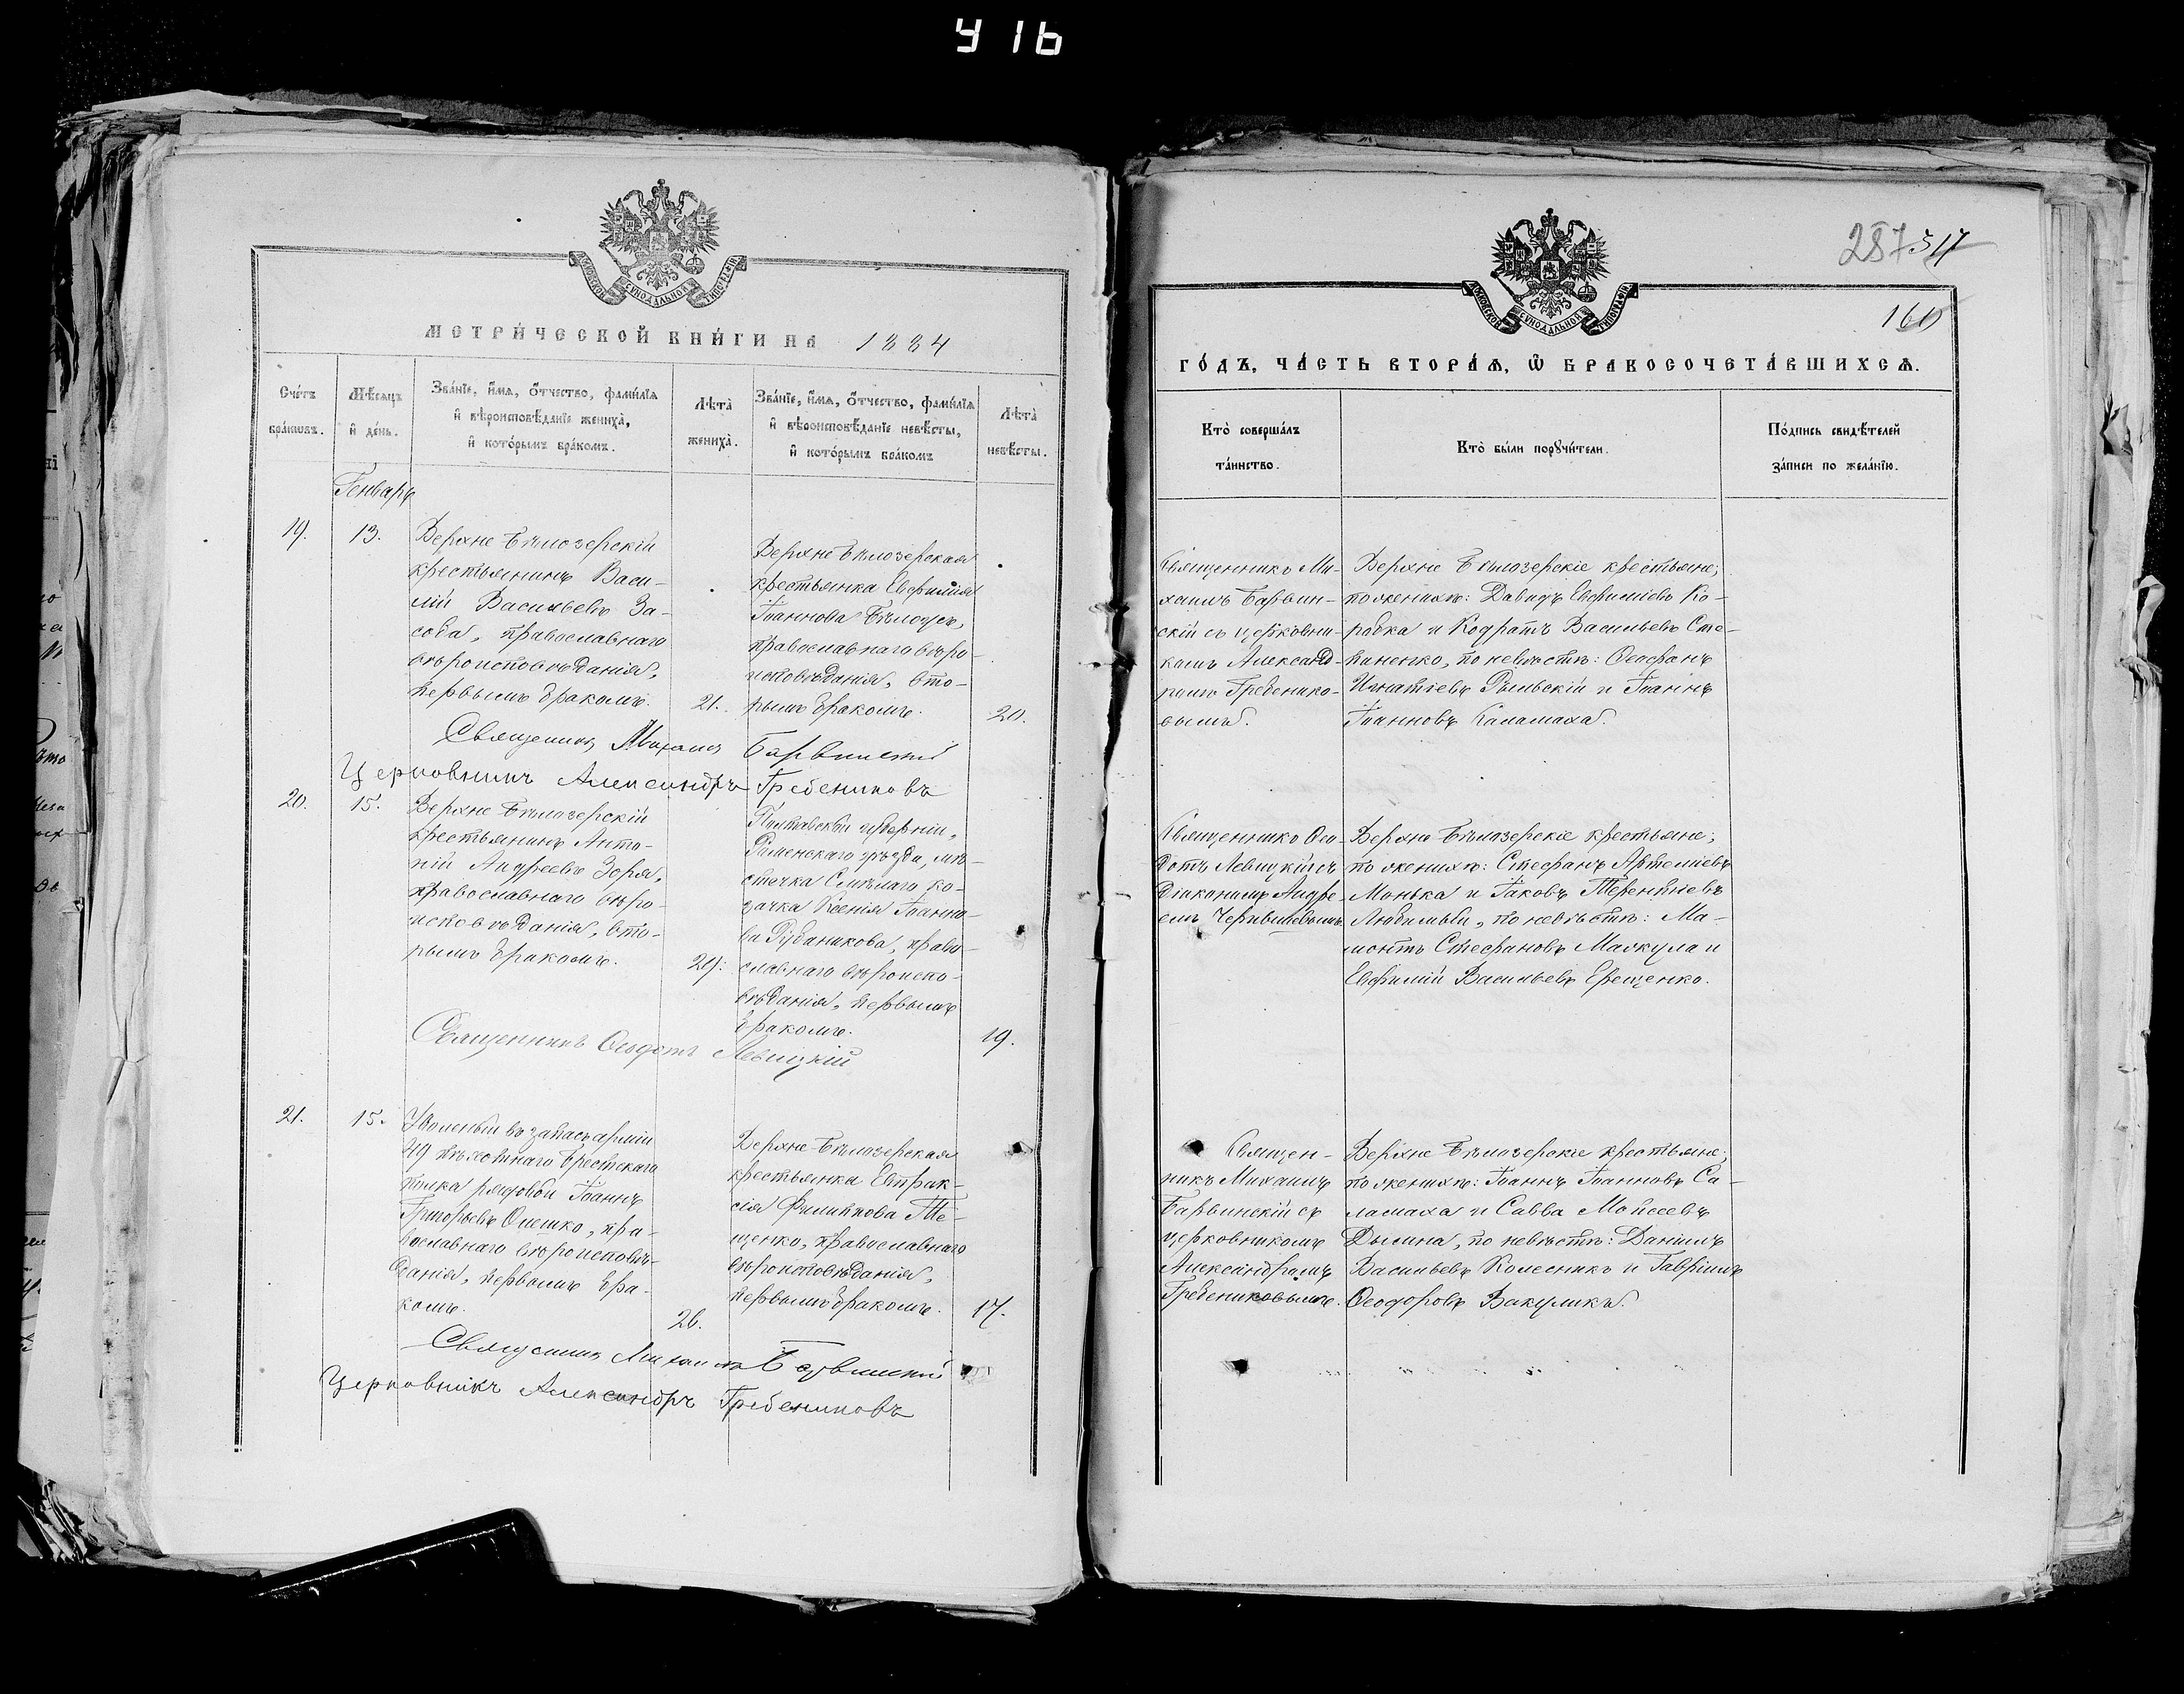 У 16
МЕТРИЧЕСКОЙ КНИГИ НА 1884
Счетъ браковъ.
Мѣсяцъ и день.
Званіе, имя, отчество, фамилія
и вѣроисповѣданіе жениха,
и которымъ бракомъ.
Лѣта жениха.
Званіе, имя, отчество, фамилія
и вѣроисповѣданіе невѣсты,
и которымъ бракомъ
Лѣта невѣсты.
Генварь
19.
13.
Верхне Бѣлозерскій
крестьянинъ Васи-
лій Васильевъ За-
соба, православнаго
вѣроисповѣданія,
первымъ бракомъ.
21.
Верхне Бѣлозерская
крестьянка Евфимія
Іоаннова Бѣлоусъ,
православнаго вѣро-
исповѣданія, вто-
рымъ бракомъ.
20.
Священникъ Михаилъ Барвинскій
Церковникъ Александръ Гребениковъ
20.
15.
Верхне Бѣлозерскій
крестьянинъ Анто-
ній Андреевъ Зоря,
православнаго вѣро-
исповѣданія, вто-
рымъ бракомъ.
29.
Полтавской губерніи,
Роменскаго уѣзда, мѣ-
стечка Смѣлаго ко-
зачка Ксенія Іоанно-
ва Рубаникова, право-
славнаго вѣроиспо-
вѣданія, первымъ
бракомъ.
19.
Священникъ Ѳеодотъ Левицкій
21.
15.
Уволеный въ запасъ арміи
49 пѣхотнаго Брестскаго
полка рядовой Іоаннъ
Григорьевъ Олешко, пра-
вославнаго вѣроисповѣ-
данія, первымъ бра-
комъ.
26.
Верхне Бѣлозерская
крестьянка Евпрак-
сія Филиппова Те-
щенко, православнаго
вѣроисповѣданія,
первымъ бракомъ.
17.
Священникъ Михаилъ Барвинскій
Церковникъ Александръ Гребениковъ
287 517
160
ГОДЪ, ЧАСТЬ ВТОРАЯ, Ѿ БРАКОСОЧЕТАВШИХСЯ.
Кто совершалъ
таинство.
Кто были поручители.
Подпись свидѣтелей
записи по желанію.
Священникъ Ми-
хаилъ Барвин-
скій съ церковни-
комъ Александ-
ромъ Гребенико-
вымъ.
Верхне Бѣлозерскіе крестьяне;
по женихѣ: Давидъ Евфиміевъ Ко-
робка и Кодратъ Васильевъ Сте-
паненко, по невѣстѣ: Ѳеофанъ
Игнатіевъ Рыльскій и Іоаннъ
Іоанновъ Каламаха.
Священникъ Ѳео-
дотъ Левицкій съ
діакономъ Андре-
емъ
Верхне Бѣлозерскіе крестьяне;
по женихѣ: Стефанъ Артеміевъ
Монька и Іаковъ Терентіевъ
по невѣстѣ: Ма-
монтъ Стефановъ Мацкула и
Евфимій Васильевъ Ерещенко.
Священ-
никъ Михаилъ
Барвинскій съ
церковникомъ
Александромъ
Гребениковымъ.
Верхне Бѣлозерскіе крестьяне;
по женихѣ: Іоаннъ Іоанновъ Са-
ламаха и Савва Мойсеевъ
Дымина, по невѣстѣ: Даніилъ
Васильевъ Колесникъ и Гавріилъ
Ѳеодоровъ Вакуликъ.